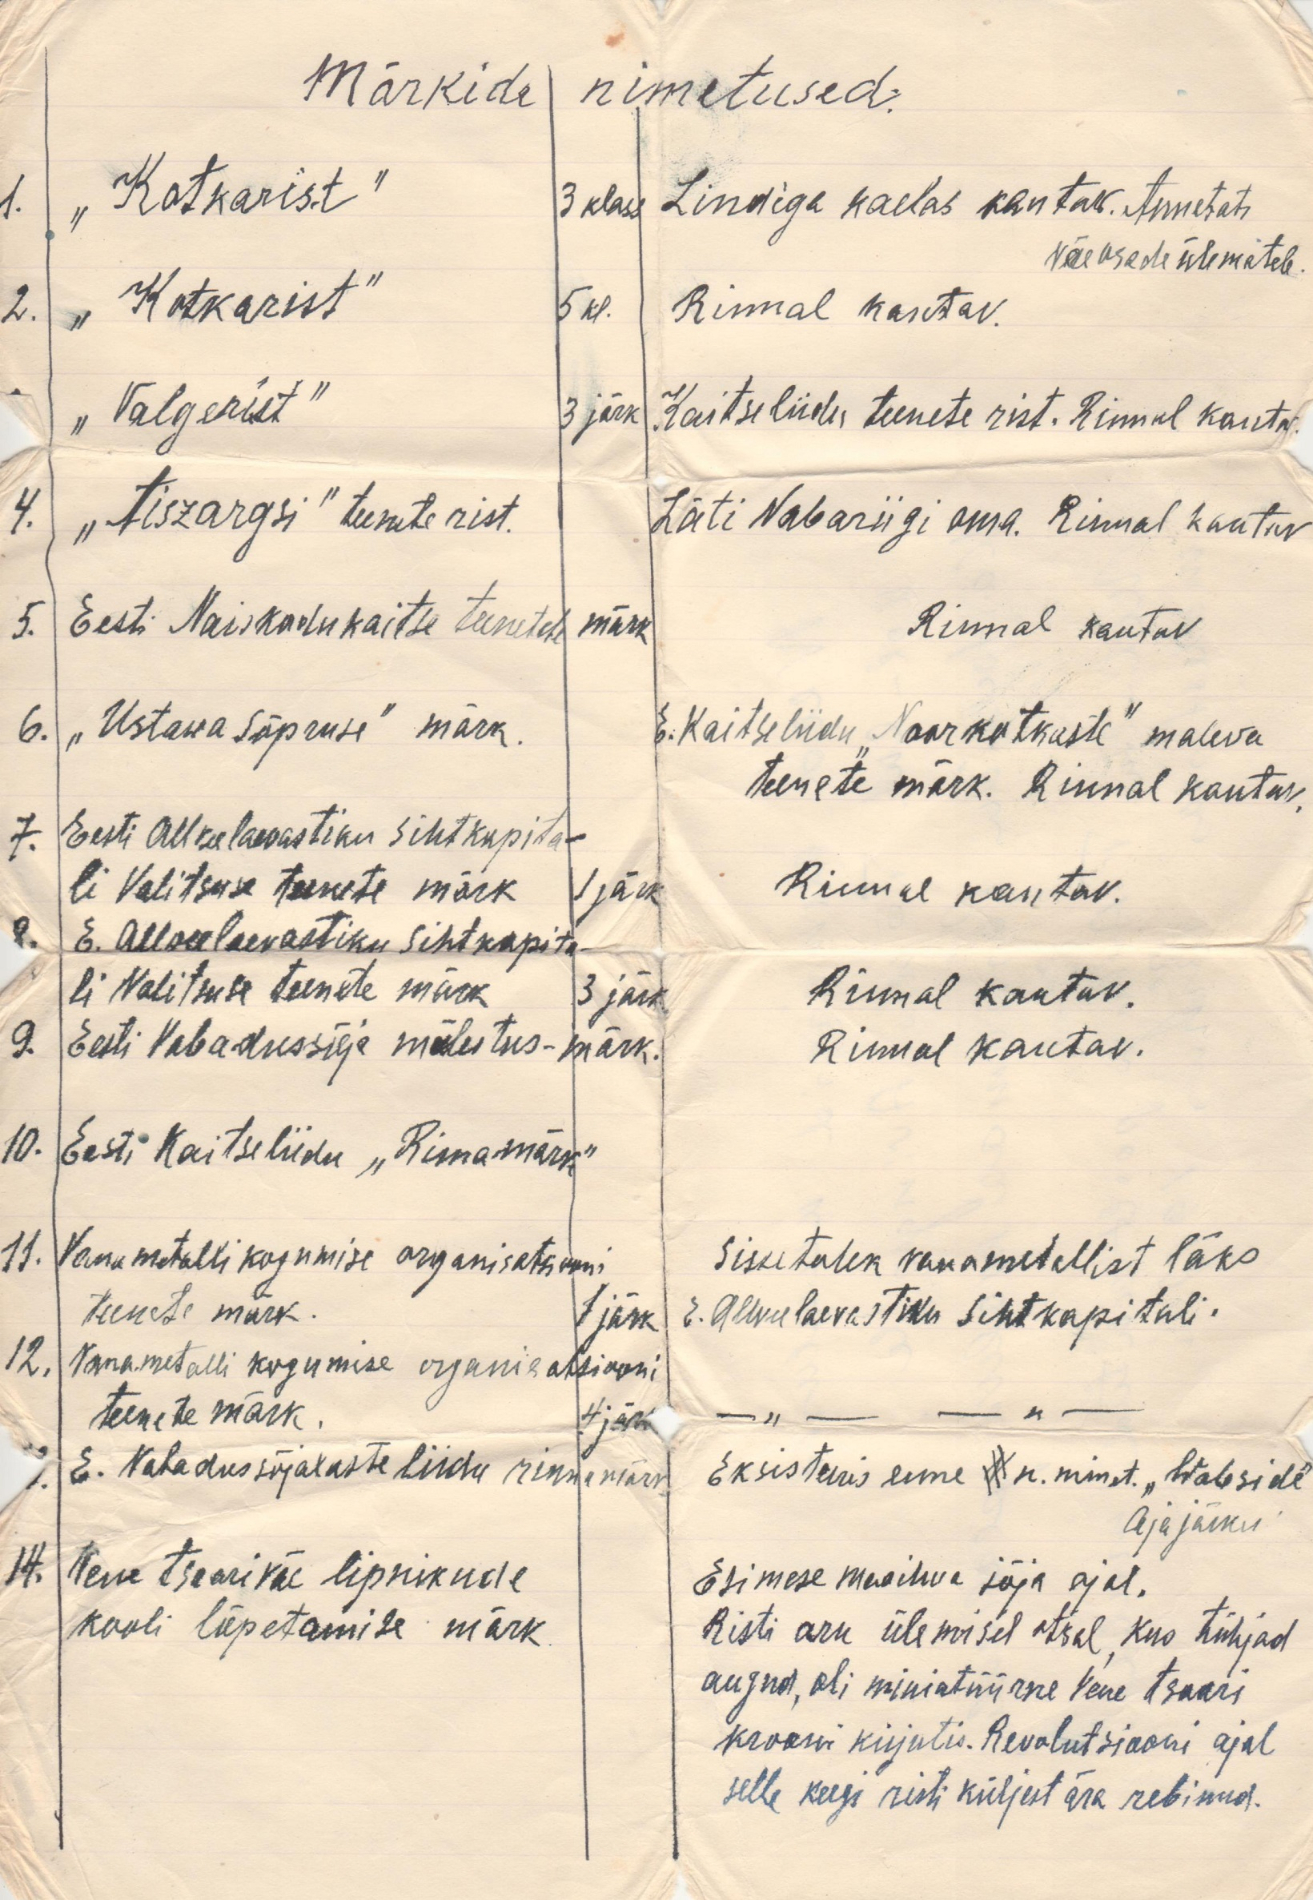 Märkide nimetused:
1. „Kotkarist" 3 klass Lindiga kaelas kantav. Annetati
väeosade ülematele.
2. „Kotkarist" 5 kl. Rinnal kantav.
„Valgerist" 3 järk Kaitseliidu teenete rist. Rinnal kantav.
4. „Aiszargsi" teenete rist. Läti Vabariigi oma. Rinnal kantav
5. Eesti Naiskodukaitse teenetete märk Rinnal kantav
6. „Ustava Sõpruse" märk. E. Kaitseliidu „Noorkotkaste" maleva
teenete märk. Rinnal kantav.
7. Eesti Allveelaevastiku Sihtkapita-
li Valitsuse teenete märk 1 järk Rinnal kantav.
8. E. Allveelaevastiku Sihtkapita-
li Valitsuse teenete märk 3 järk. Rinnal kantav.
9. Eesti Vabadussõja mälestus-märk. Rinnal kantav.
10. Eesti Kaitseliidu „Rinnamärk"
11. Vanametalli kogumise organisatsiooni Sissetulek vanametallist läks
teenete märk. 1 järk E. Allveelaevastiku Sihtkapitali.
12. Vanametalli kogumise organisatsiooni
teenete märk. 4 järk — „ — — „ —
E. Vabadussõjalaste liidu rinnamärk Eksisteeris enne n. nimet. „Wabside"
ajajärku
14. Vene tsaariväe lipnikude Esimese maailma sõja ajal.
kooli lõpetamise märk. Risti aru ülemisel otsal, kus tühjad
augud, oli miniatüürne Vene tsaari
krooni kujutis. Revolutsiooni ajal
selle keegi risti küljest ära rebinud.